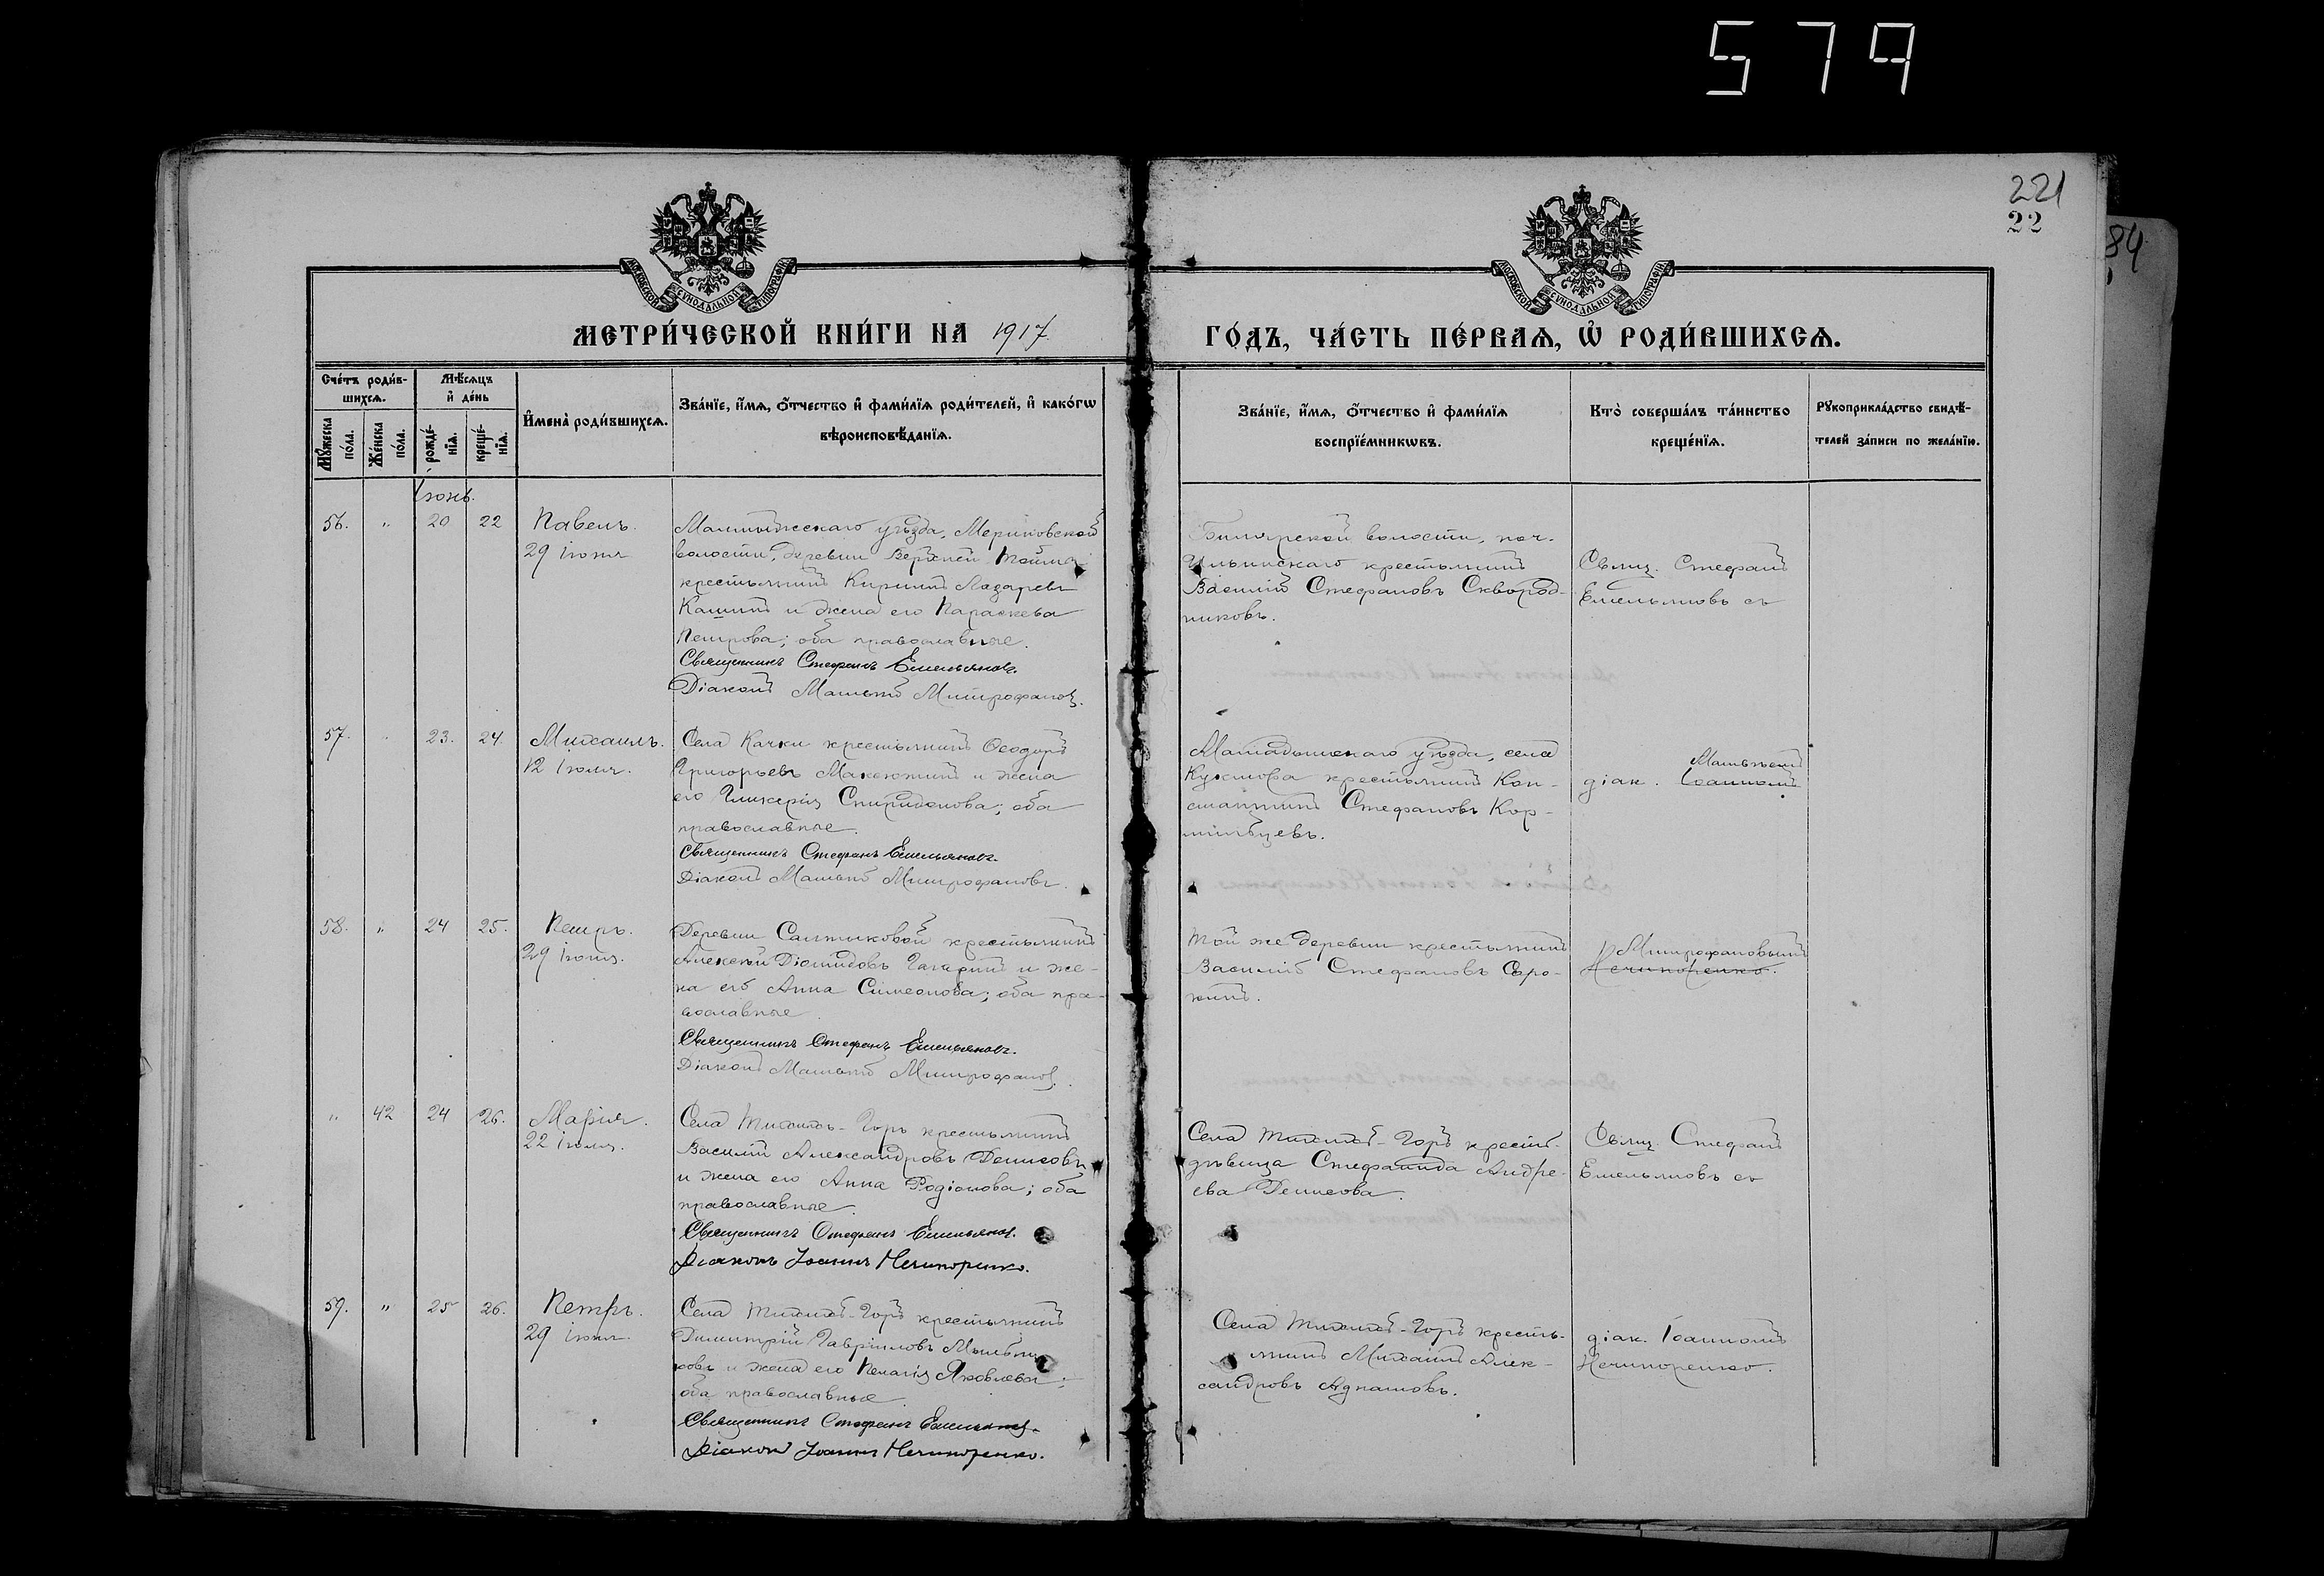 579
221
22
84
МОСКОВСКОЙ СѴНОДАЛЬНОЙ ТИПОГРАФІИ
МОСКОВСКОЙ СѴНОДАЛЬНОЙ ТИПОГРАФІИ
МЕТРИ́ЧЕСКОЙ КНИ́ГИ НА 1917 ГО́ДЪ, ЧА́СТЬ ПЕ́РВАѦ, Ѡ҆ РОДИ́ВШИХСѦ.
Сче́тъ роди́в-
шихсѧ.
Мꙋ́жеска по́ла.
Же́нска по́ла.
Мѣ́сѧцъ
и҆ де́нь
рожде́-
нїѧ.
креще́-
нїѧ.
И҆мена̀ роди́вшихсѧ.
Зва́нїе, и҆́мѧ, ѻ҆́тчество и҆ фами́лїѧ роди́телей, и҆ како́гѡ
вѣроисповѣ́данїѧ.
Зва́нїе, и҆́мѧ, ѻ҆́тчество и҆ фами́лїѧ
воспрїе́мникѡвъ.
Кто̀ соверша́лъ та́инство
креще́нїѧ.
Рꙋкоприкла́дство свидѣ́-
телей за́писи по жела́нїю.
Іюнь.
56. " 20 22 Павелъ.
29 іюня
Малмыжскаго уѣзда, Мериновской
волости, деревни Верхней Тоймы
крестьянинъ Кириллъ Лазаревъ
Кашинъ и жена его Параскева
Петрова; оба православные.
Священникъ Стефанъ Емельяновъ.
Діаконъ Матвѣй Митрофановъ.
Билярской волости, поч.
Ильинскаго крестьянинъ
Василій Стефановъ Сковород-
никовъ.
Свящ. Стефанъ
Емельяновъ съ
57. " 23. 24. Михаилъ.
12 Іюля.
Села Качки крестьянинъ Ѳеодоръ
Григорьевъ Максютинъ и жена
его Гликерія Спиридонова; оба
православные.
Священникъ Стефанъ Емельяновъ.
Діаконъ Матвѣй Митрофановъ.
Мамадышскаго уѣзда, села
Кукмора крестьянинъ Кон-
стантинъ Стефановъ Кор-
мильцевъ.
Матвѣемъ
діак. Іоанномъ
58. " 24 25. Петръ.
29 Іюня.
Деревни Салтыковой крестьянинъ
Алексѣй Діомидовъ Гагаринъ и же-
на его Анна Симеонова; оба пра-
вославные.
Священникъ Стефанъ Емельяновъ.
Діаконъ Матвѣй Митрофановъ.
Той же деревни крестьянинъ
Василій Стефановъ Соро-
кинъ.
Митрофановымъ
Нечипоренко.
" 42 24 26. Марія.
22 Іюля.
Села Тихихъ-Горъ крестьянинъ
Василій Александровъ Денисовъ
и жена его Анна Родіонова; оба
православные.
Священникъ Стефанъ Емельяновъ.
Діаконъ Іоаннъ Нечипоренко.
Села Тихихъ-Горъ крестьян.
дѣвица Стефанида Андре-
ева Денисова.
Свящ. Стефанъ
Емельяновъ съ
59. " 25 26. Петръ.
29 Іюня.
Села Тихихъ-Горъ крестьянинъ
Димитрій Гавріиловъ Мыльни-
ковъ и жена его Пелагія Яковлева;
оба православные.
Священникъ Стефанъ Емельяновъ.
Діаконъ Іоаннъ Нечипоренко.
Села Тихихъ-Горъ кресть-
янинъ Михаилъ Алек-
сандровъ Аднашовъ.
діак. Іоанномъ
Нечипоренко.